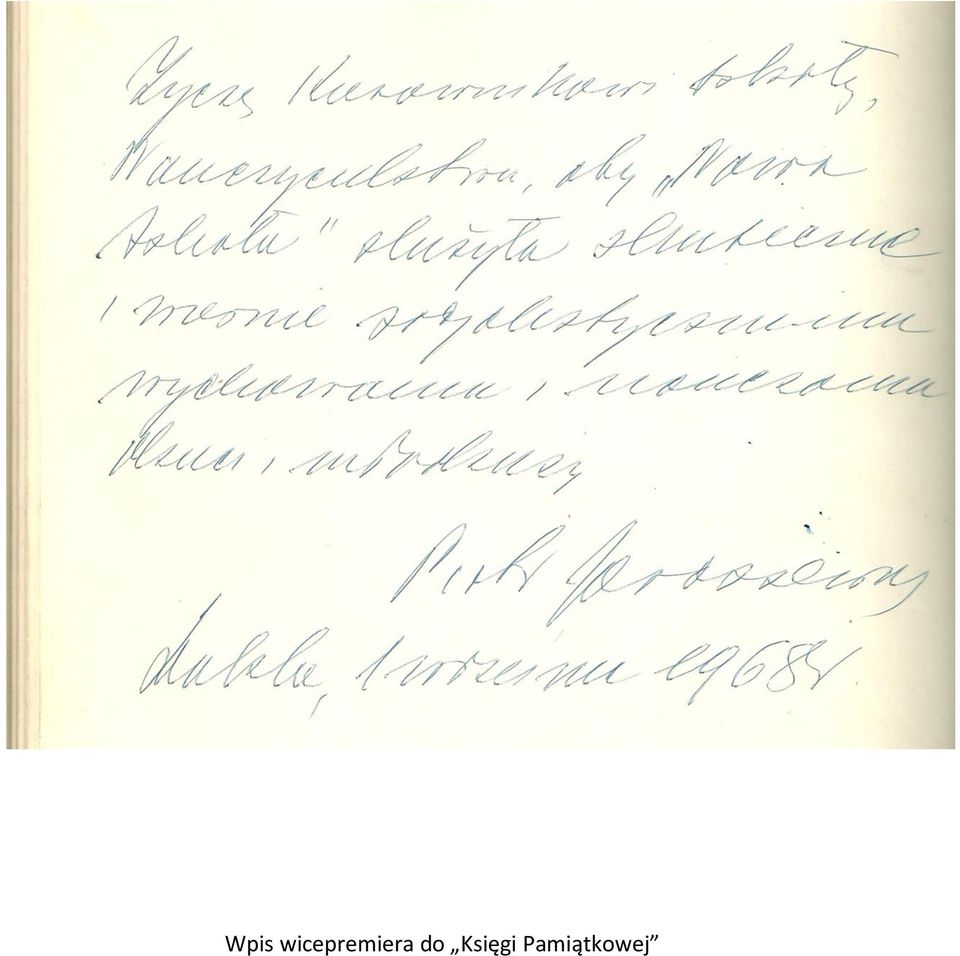 Życzę Kierownikowi szkoły,
Nauczycielstwu, aby „Nowa
Szkoła" służyła skutecznie
i wiernie socjalistycznemu
wychowaniu i nauczaniu
dzieci i młodzieży
Piotr Jaroszewicz
1 września 1968 r
Wpis wicepremiera do „Księgi Pamiątkowej”